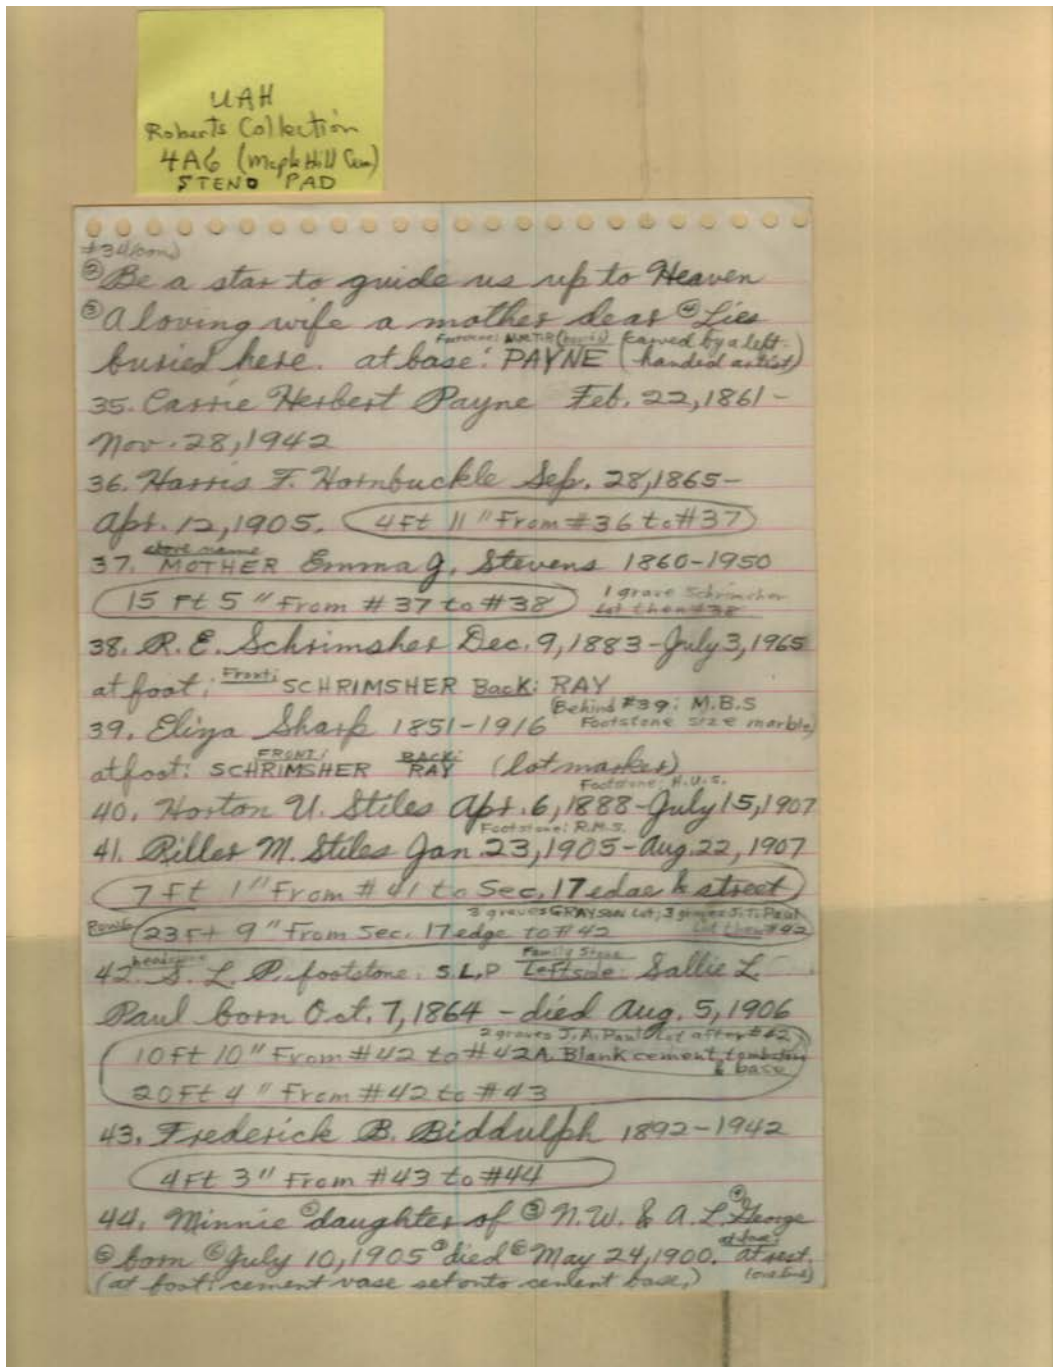 UAH
Roberts Collection
4A6 (Maple Hill Cem)
STENO PAD
#34 (con)
② Be a star to guide us up to Heaven
③ A loving wife a mother dear ④ Lies
Footstone: (carved by a left-
buried here. at base: PAYNE handed artist)
35. Carrie Herbert Payne Feb. 22, 1861-
Nov. 28, 1942
36. Harris F. Hornbuckle Sep. 28, 1865-
Apr. 12, 1905. 4 Ft 11" From #36 to #37
above name
37. MOTHER Emma J. Stevens 1860-1950
15 Ft 5" From #37 to #38 1 grave Schrimsher
Lot then #38
38. R. E. Schrimsher Dec. 9, 1883-July 3, 1965
at foot: Front: SCHRIMSHER Back: RAY
(Behind #39: M.B.S
39. Eliza Sharp 1851-1916 Footstone size marble)
at foot: FRONT: SCHRIMSHER BACK: RAY (lot marker)
Footstone: H.U.S.
40. Horton U. Stiles Apr. 6, 1888-July 15, 1907
Footstone: R.M.S.
41. Riller M. Stiles Jan. 23, 1905-Aug. 22, 1907
7 Ft 1" From #41 to Sec. 17 edge & street
3 graves GRAYSON Lot; 3 graves J.T. Paul
23 Ft 9" From Sec. 17 edge to #42 Lot then #42
headstone Family Stone
42. S. L. P. footstone: S.L.P Leftside: Sallie L.
Paul born Oct. 7, 1864 - died Aug. 5, 1906
2 graves J. A. Paul Lot after #42
10 Ft 10" From #42 to #42A. Blank cement tombstone
& base
20 Ft 4" From #42 to #43
43. Frederick B. Biddulph 1892-1942
4 Ft 3" From #43 to #44
44. Minnie ② daughter of ③ N. W. & A. L. ④ George
⑤ born ⑥ July 10, 1905 ⑦ died ⑧ May 24, 1900. at base: at rest.
(at foot: cement vase set onto cement base.) (one line)